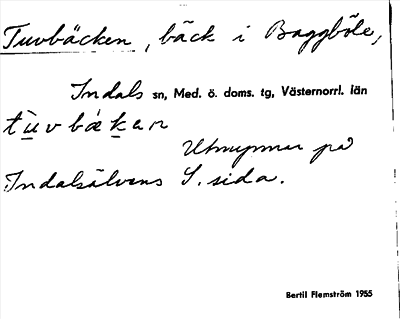 Tuvbäcken, bäck i Baggböle,
Indals sn, Med. ö. doms. tg, Västernorrl. län
tùvbækan
Utmynnar på
Indalsälvens S. sida.
Bertil Flemström 1955